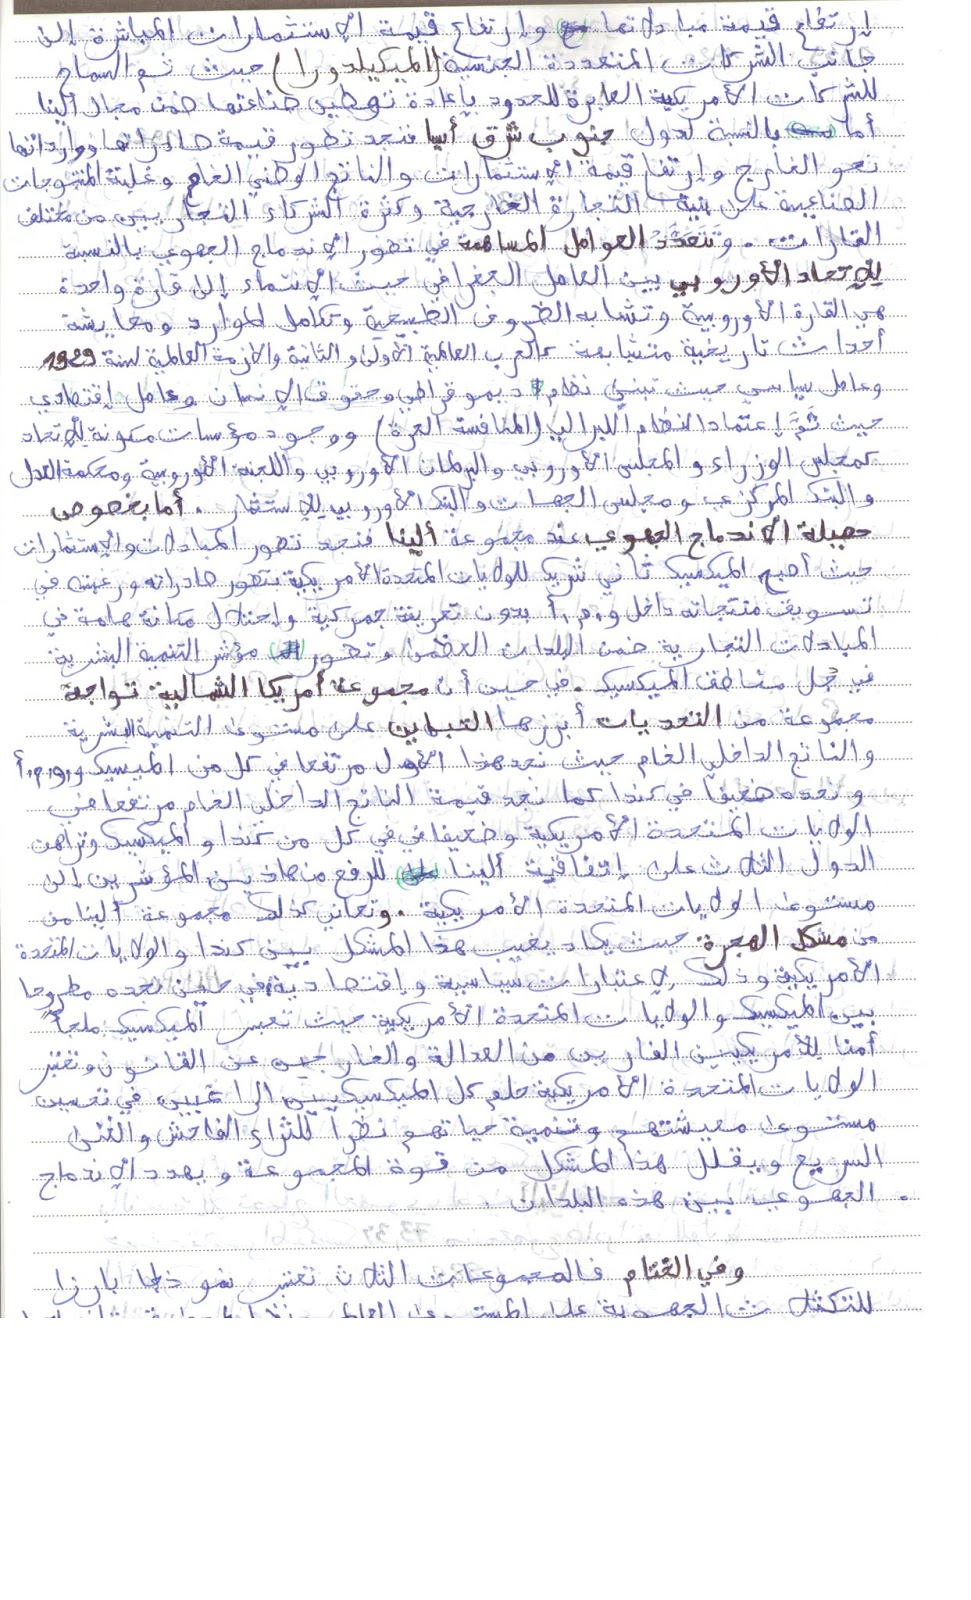 إرتفاع قيمة مبادلاتها وإرتفاع قيمة الإستثمارات المباشرة إلى
جانب الشركات المتعددة الجنسية (الميكيلدورا) حيث تم السماح
للشركات الأمريكية العابرة للحدود بإعادة توطين صناعتها ضمن مجال ألينا
أما بالنسبة لدول جنوب شرق أسيا فنجد تطور قيمة صادراتها ووارداتها
نحو الخارج وإرتفاع قيمة الإستثمارات والناتج الوطني الخام وغلبة المنتوجات
الصناعية على بنية التجارة الخارجية وكثرة الشركاء التجاريين من مختلف
القارات. وتتعدد العوامل المساهمة في تطور الإندماج الجهوي بالنسبة
للإتحاد الأوروبي بين العامل الجغرافي حيث الإنتماء إلى قارة واحدة
هي القارة الأوروبية وتشابه الظروف الطبيعية وتكامل الموارد ومعايشة
أحداث تاريخية متشابهة كالحرب العالمية الأولى والثانية والأزمة العالمية لسنة 1929
وعامل سياسي حيث تبني نظام ديموقراطي وحقوق الإنسان وعامل إقتصادي
حيث تم إعتماد النظام الليبرالي (المنافسة الحرة) ووجود مؤسسات مكونة للإتحاد
كمجلس الوزراء والمجلس الأوروبي والبرلمان الأوروبي واللجنة الأوروبية ومحكمة العدل
والبنك المركزي ومجلس الجهات والبنك الأوروبي للإستثمار. أما بخصوص
حصيلة الإندماج الجهوي عند مجموعة ألينا فنجد تطور المبادلات والإستثمارات
حيث أصبح المكسيك ثاني شريك للولايات المتحدة الأمريكية بتطور صادراته ورغبته في
تسويق منتجاته داخل و.م.أ بدون تعريفة جمركية وإحتلال مكانة هامة في
المبادلات التجارية ضمن البلدان العظمى وتطور مؤشر التنمية البشرية
في جُل مناطق المكسيك. في حين أن مجموعة أمريكا الشمالية تواجه
مجموعة من التحديات أبرزها التباين على مستوى التنمية البشرية
والناتج الداخلي الخام حيث نجد هذا الأول مرتفعا في كل من المكسيك و و.م.أ
ونجده ضعيفا في كندا كما نجد قيمة الناتج الداخلي الخام مرتفعا في
الولايات المتحدة الأمريكية وضعيفا في كل من كندا والمكسيك وتراهن
الدول الثلاث على إتفاقية ألينا للرفع من هاذين المؤشرين إلى
مستوى الولايات المتحدة الأمريكية. وتعاني كذلك مجموعة ألينا من
من مشكل الهجرة حيث يكاد يغيب هذا المشكل بين كندا والولايات المتحدة
الأمريكية وذلك لإعتبارات سياسية وإقتصادية في حين نجده مطروحا
بين المكسيك والولايات المتحدة الأمريكية حيث تعتبر المكسيك ملجأ
أمنا للأمريكيين الفارين من العدالة والخارجين عن القانون وتعتبر
الولايات المتحدة الأمريكية حلم كل المكسيكيين الراغبين في تحسين
مستوى معيشتهم وتنمية حياتهم نظرا للثراء الفاحش والغنى
السريع ويقلل هذا المشكل من قوة المجموعة ويهدد الإندماج
الجهوي بين هذه البلدان.
وفي الختام فالمجموعات الثلاث تعتبر نموذجا بارزا
للتكتلات الجهوية على المستوى العالمي